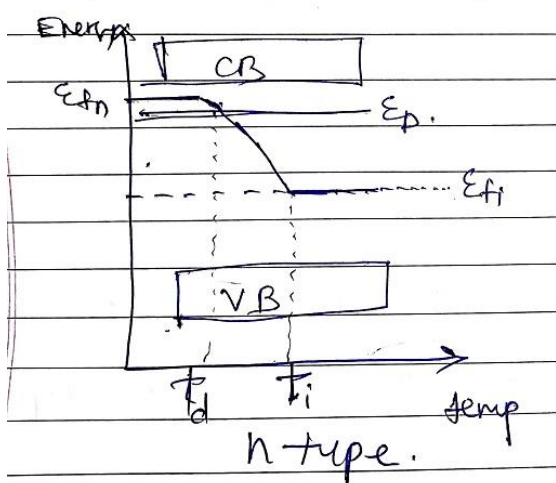 Energy
CB
Efn
ED.
Efi
VB
Td Ti
temp
n type.